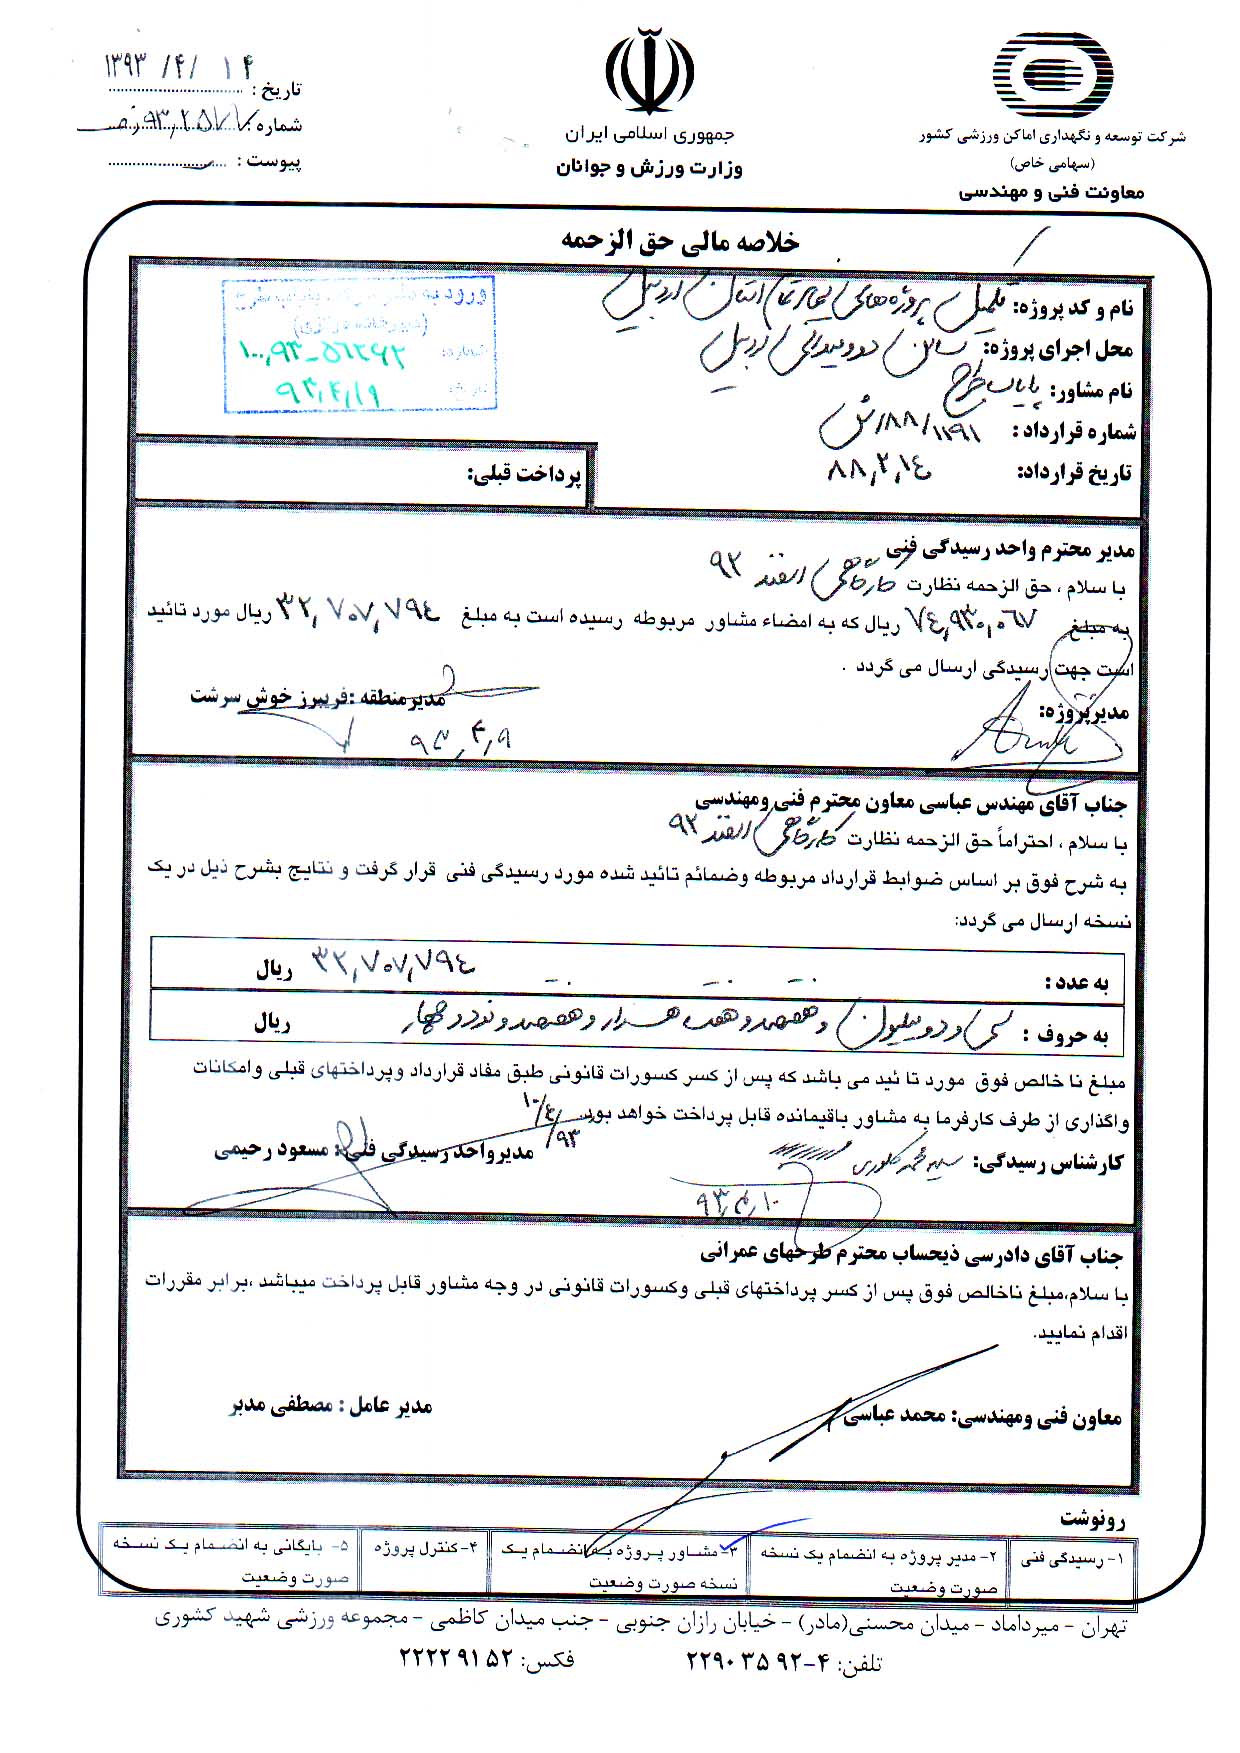 شرکت توسعه و نگهداری اماکن ورزشی کشور
(سهامی خاص)
معاونت فنی و مهندسی
جمهوری اسلامی ایران
وزارت ورزش و جوانان
تاریخ : ۱۳۹۳/۴/۱۴
شماره :
پیوست :
خلاصه مالی حق الزحمه
نام و کد پروژه: تکمیل پروژه‌های نیمه تمام استان اردبیل
محل اجرای پروژه: سالن دوومیدانی اردبیل
نام مشاور: پایاب طرح
شماره قرارداد : ۸۸/۱۱۹۱/ش
تاریخ قرارداد: ۸۸,۲,۱۴
۱۰۰,۹۳-۵۶۲۶۲
۹۳,۴,۱۹
پرداخت قبلی:
مدیر محترم واحد رسیدگی فنی
با سلام ، حق الزحمه نظارت کارگاهی اسفند ۹۲
به مبلغ ۷٤,۹۳۰,۰٦۷ ریال که به امضاء مشاور مربوطه رسیده است به مبلغ ۳۲,۷۰۷,۷۹٤ ریال مورد تائید
است جهت رسیدگی ارسال می گردد .
مدیرپروژه:
مدیرمنطقه :فریبرز خوش سرشت
۹۳,۴,۹
جناب آقای مهندس عباسی معاون محترم فنی ومهندسی
با سلام ، احتراماً حق الزحمه نظارت کارگاهی اسفند ۹۲
به شرح فوق بر اساس ضوابط قرارداد مربوطه وضمائم تائید شده مورد رسیدگی فنی قرار گرفت و نتایج بشرح ذیل در یک
نسخه ارسال می گردد:
به عدد : ۳۲,۷۰۷,۷۹٤ ریال
به حروف : سی و دو میلیون و هفتصد و هفت هزار و هفتصد و نود و چهار ریال
مبلغ نا خالص فوق مورد تا ئید می باشد که پس از کسر کسورات قانونی طبق مفاد قرارداد وپرداختهای قبلی وامکانات
واگذاری از طرف کارفرما به مشاور باقیمانده قابل پرداخت خواهد بود.
کارشناس رسیدگی:
۹۳,۴,۱۰
مدیرواحد رسیدگی فنی : مسعود رحیمی
۹۳/٤/۱۰
جناب آقای دادرسی ذیحساب محترم طرحهای عمرانی
با سلام،مبلغ ناخالص فوق پس از کسر پرداختهای قبلی وکسورات قانونی در وجه مشاور قابل پرداخت میباشد ،برابر مقررات
اقدام نمایید.
معاون فنی ومهندسی: محمد عباسی
مدیر عامل : مصطفی مدبر
رونوشت
۱- رسیدگی فنی
۲- مدیر پروژه به انضمام یک نسخه
صورت وضعیت
۳- مشاور پروژه به انضمام یک
نسخه صورت وضعیت
۴-کنترل پروژه
۵- بایگانی به انضمام یک نسخه
صورت وضعیت
تهران - میرداماد - میدان محسنی(مادر) - خیابان رازان جنوبی - جنب میدان کاظمی - مجموعه ورزشی شهید کشوری
تلفن: ۴-۲۲۹۰۳۵۹۲ فکس: ۲۲۲۲۹۱۵۲